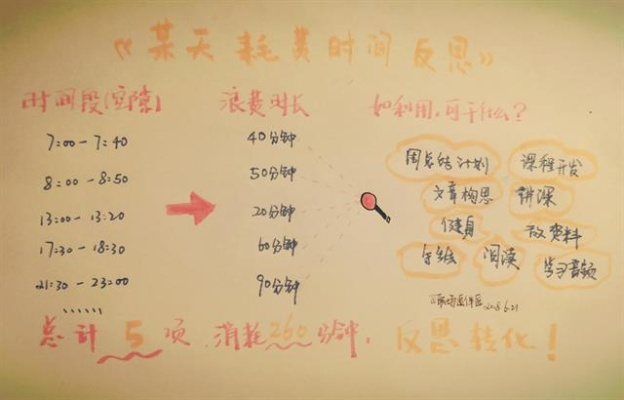 《某天耗费时间反思》
时间段(空隙) 浪费时长 如利用,可干什么?
7:00-7:40 40分钟
8:00-8:50 50分钟
13:00-13:20 20分钟
17:30-18:30 60分钟
21:30-23:00 90分钟
......
周总结计划 课程开发
文章构思 讲课
健身 改资料
手绘 阅读 学习音频
2018.6.21
总计5项,消耗260分钟,反思转化!